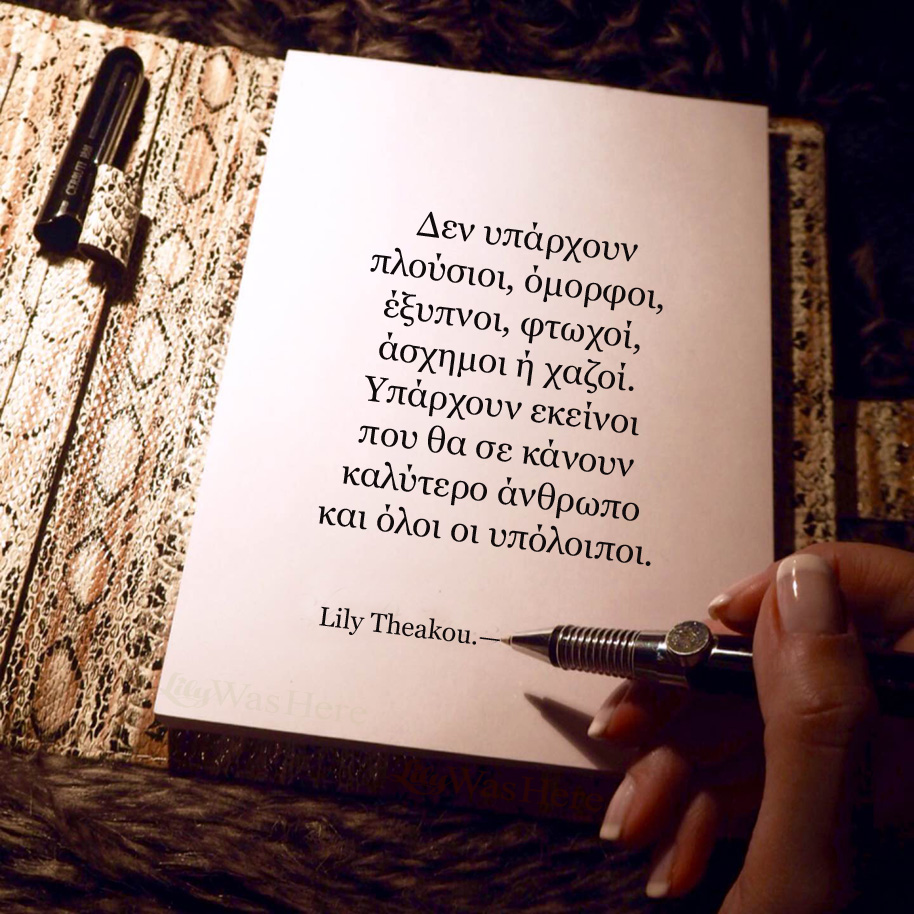 Δεν υπάρχουν
πλούσιοι, όμορφοι,
έξυπνοι, φτωχοί,
άσχημοι ή χαζοί.
Υπάρχουν εκείνοι
που θα σε κάνουν
καλύτερο άνθρωπο
και όλοι οι υπόλοιποι.
Lily Theakou.—
LilyWasHere
LilyWasHere
CERRUTI 1881